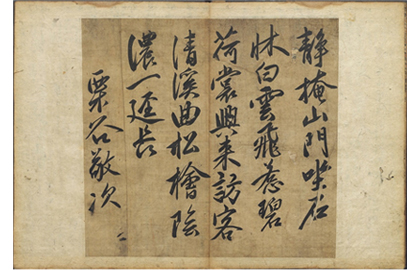 靜掩山門坐石
牀白雲飛惹碧
荷裳興來訪客
清溪曲松檜陰
濃一逕長
栗谷敬次